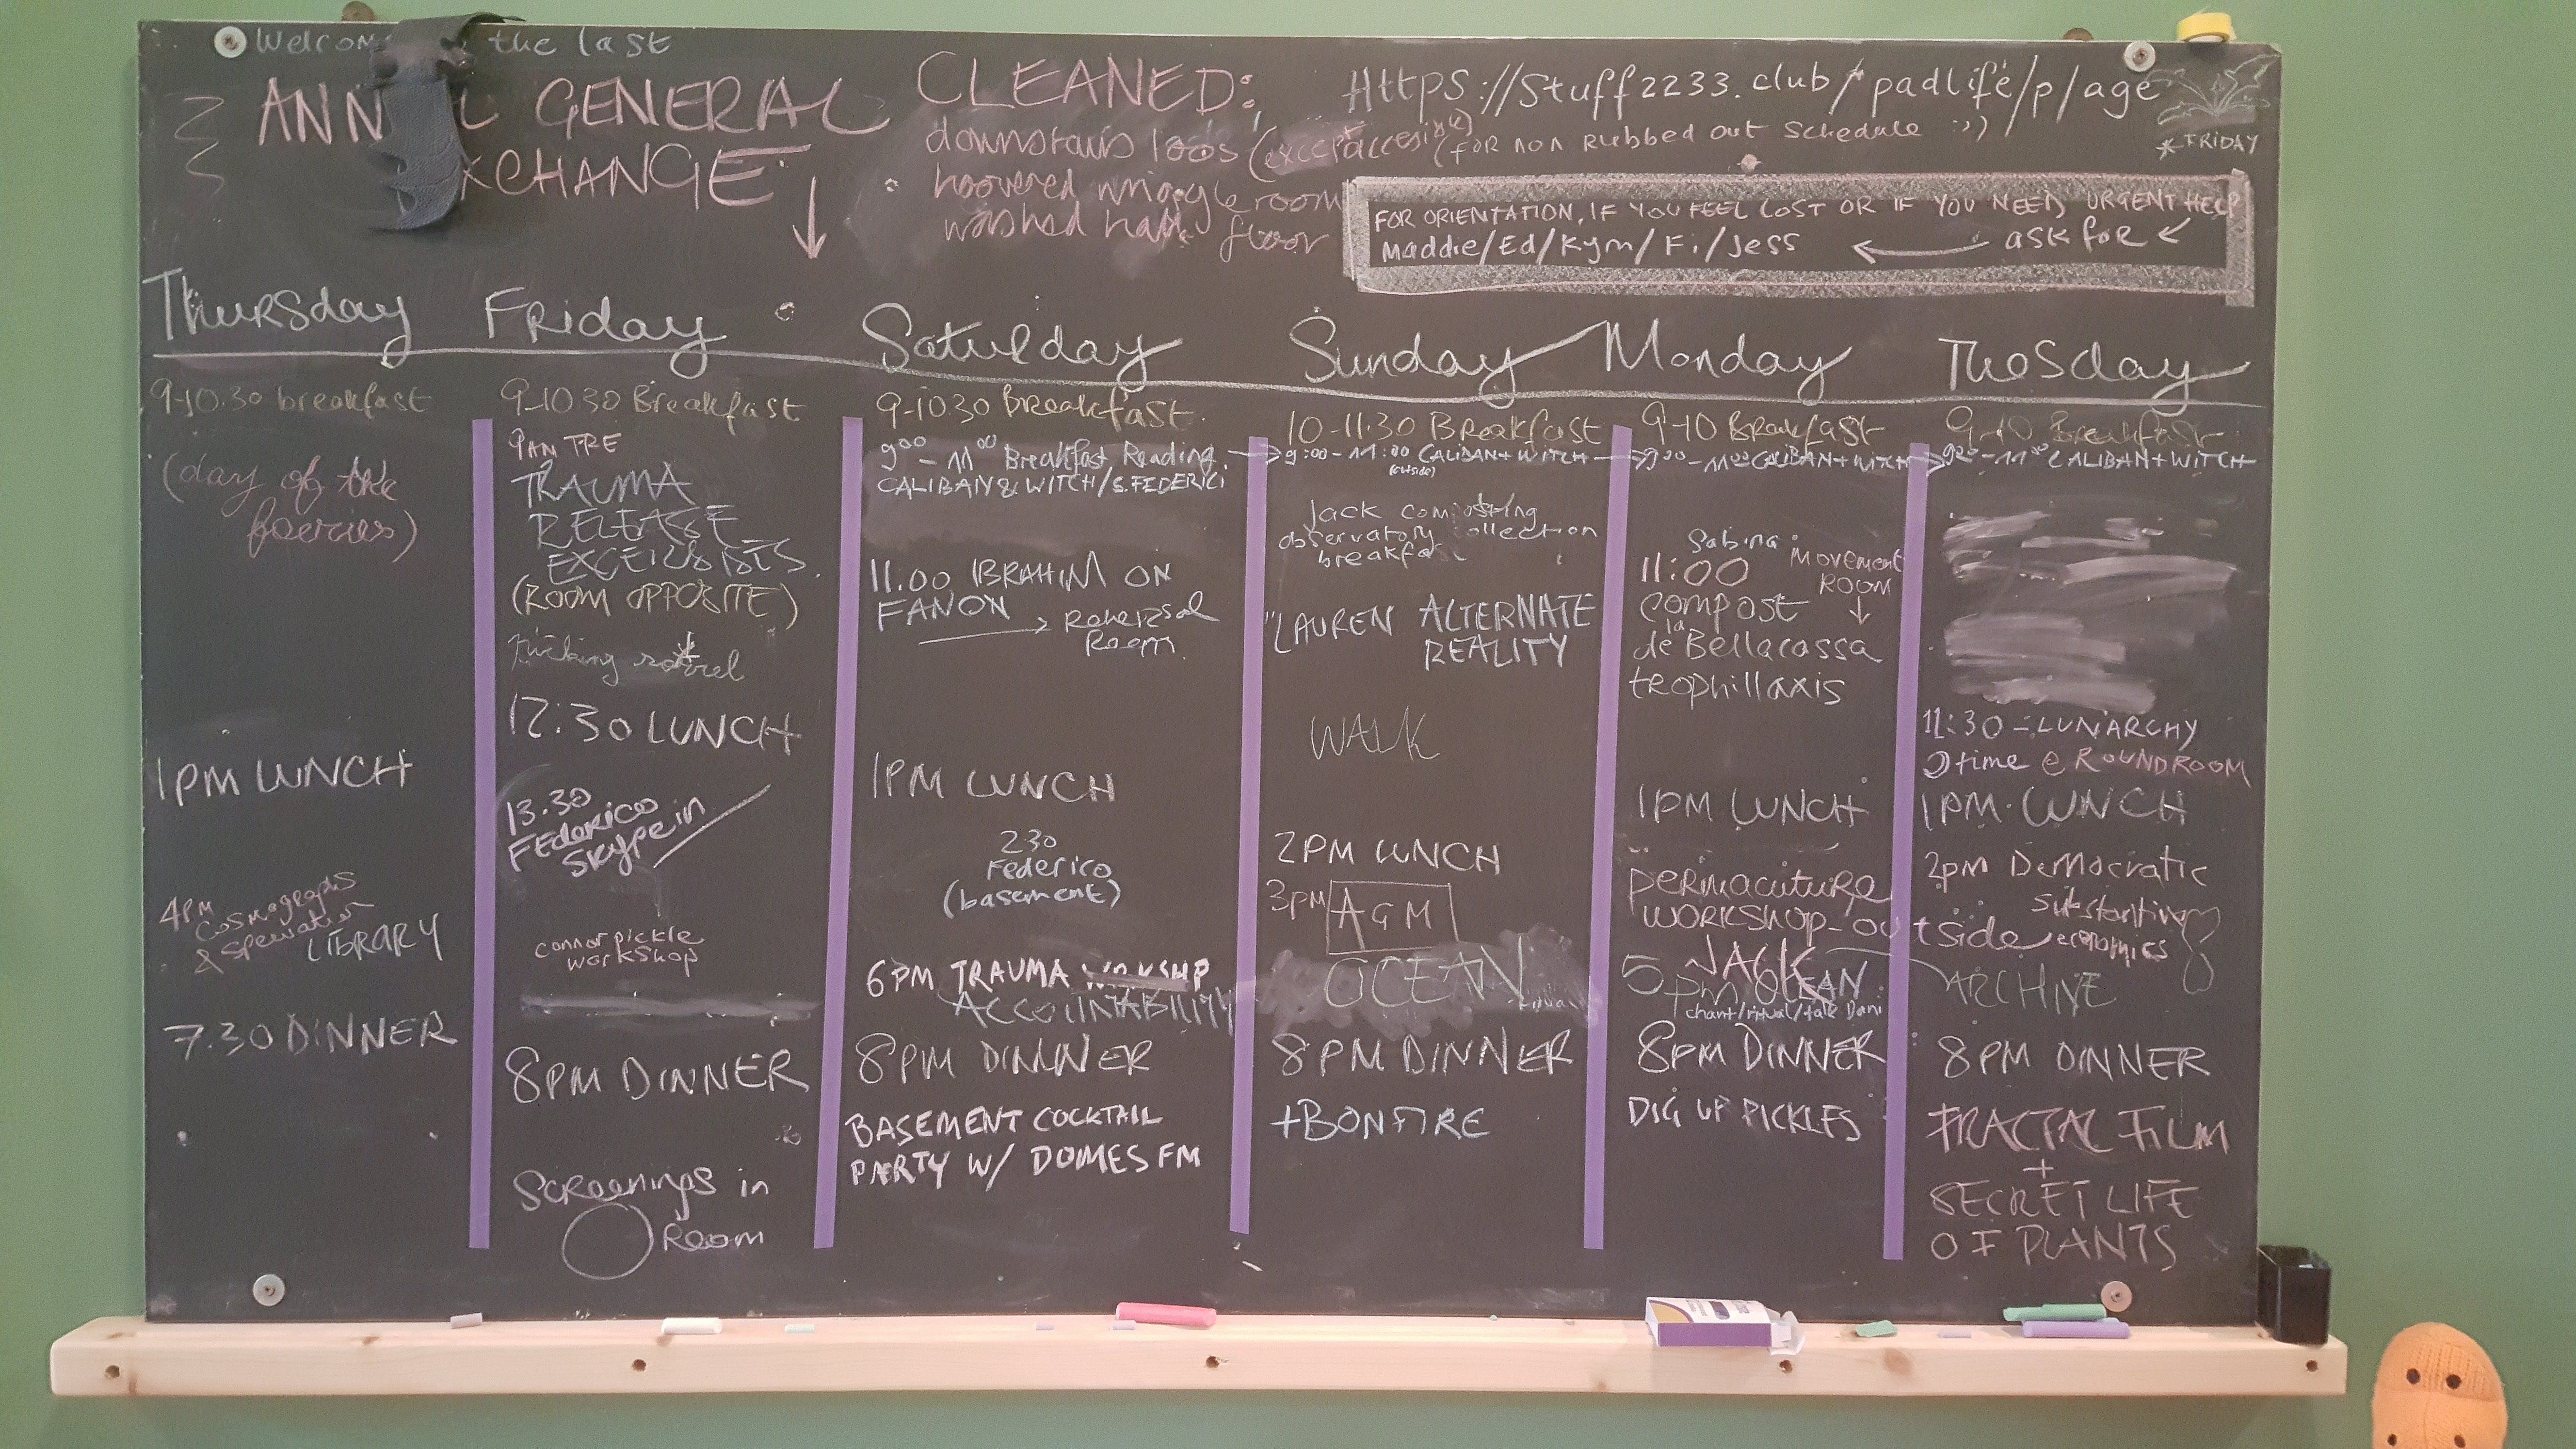 the last
GENERAL
CLEANED:
downstairs loos (except accesible)
hoovered wriggle room
washed hall floor
Https://stuff2233.club/padlife/p/age
(for non Rubbed out schedule :))
*FRIDAY
FOR ORIENTATION, IF YOU FEEL LOST OR IF YOU NEED URGENT HELP
ask for
Maddie/Ed/Kym/Fi/Jess
Thursday
9-10.30 breakfast
(day of the
faeries)
1PM LUNCH
4PM
Cosmographs
&
LIBRARY
7.30 DINNER
Friday
9-10 30 Breakfast
9AM TRE
TRAUMA
RELEASE
(ROOM OPPOSITE)
12:30 LUNCH
13.30
Federico
Skype in
connor pickle
workshop
8PM DINNER
Screenings in
Room
Saturday
9-1030 Breakfast
9⁰⁰-11⁰⁰ Breakfast Reading
CALIBAN & WITCH/S.FEDERICI
11.00 IBRAHIM ON
FANON
Rehersal
Room
1PM LUNCH
2 30
Federico
(basement)
6PM TRAUMA WORKSHP
ACCOUNTABILITY
8PM DINNER
BASEMENT COCKTAIL
PARTY W/ DOMES FM
Sunday
10-11.30 Breakfast
9:00-11:00 CALIBAN+WITCH
(outside)
Jack composting
observatory collection
breakfast
LAUREN ALTERNATE
REALITY
WALK
2PM LUNCH
3PM AGM
OCEAN
8PM DINNER
+BONFIRE
Monday
9-10 Breakfast
9⁰⁰-11⁰⁰ CALIBAN+WITCH
Sabina
11:00
MOVEMENT
ROOM
compost
la
de Bellacassa
trophillaxis
1PM LUNCH
permaculture
WORKSHOP-outside
JACK
5pm OCEAN
chant/ritual/talk Dani
8PM DINNER
DIG UP PICKLES
Tuesday
9-10 Breakfast
9⁰⁰-11⁰⁰ CALIBAN+WITCH
11:30 - LUNARCHY
time @ ROUNDROOM
1PM. LUNCH
2pm Democratic
substantive
economics
ARCHIVE
8PM DINNER
FRACTAL FILM
+
SECRET LIFE
OF PLANTS